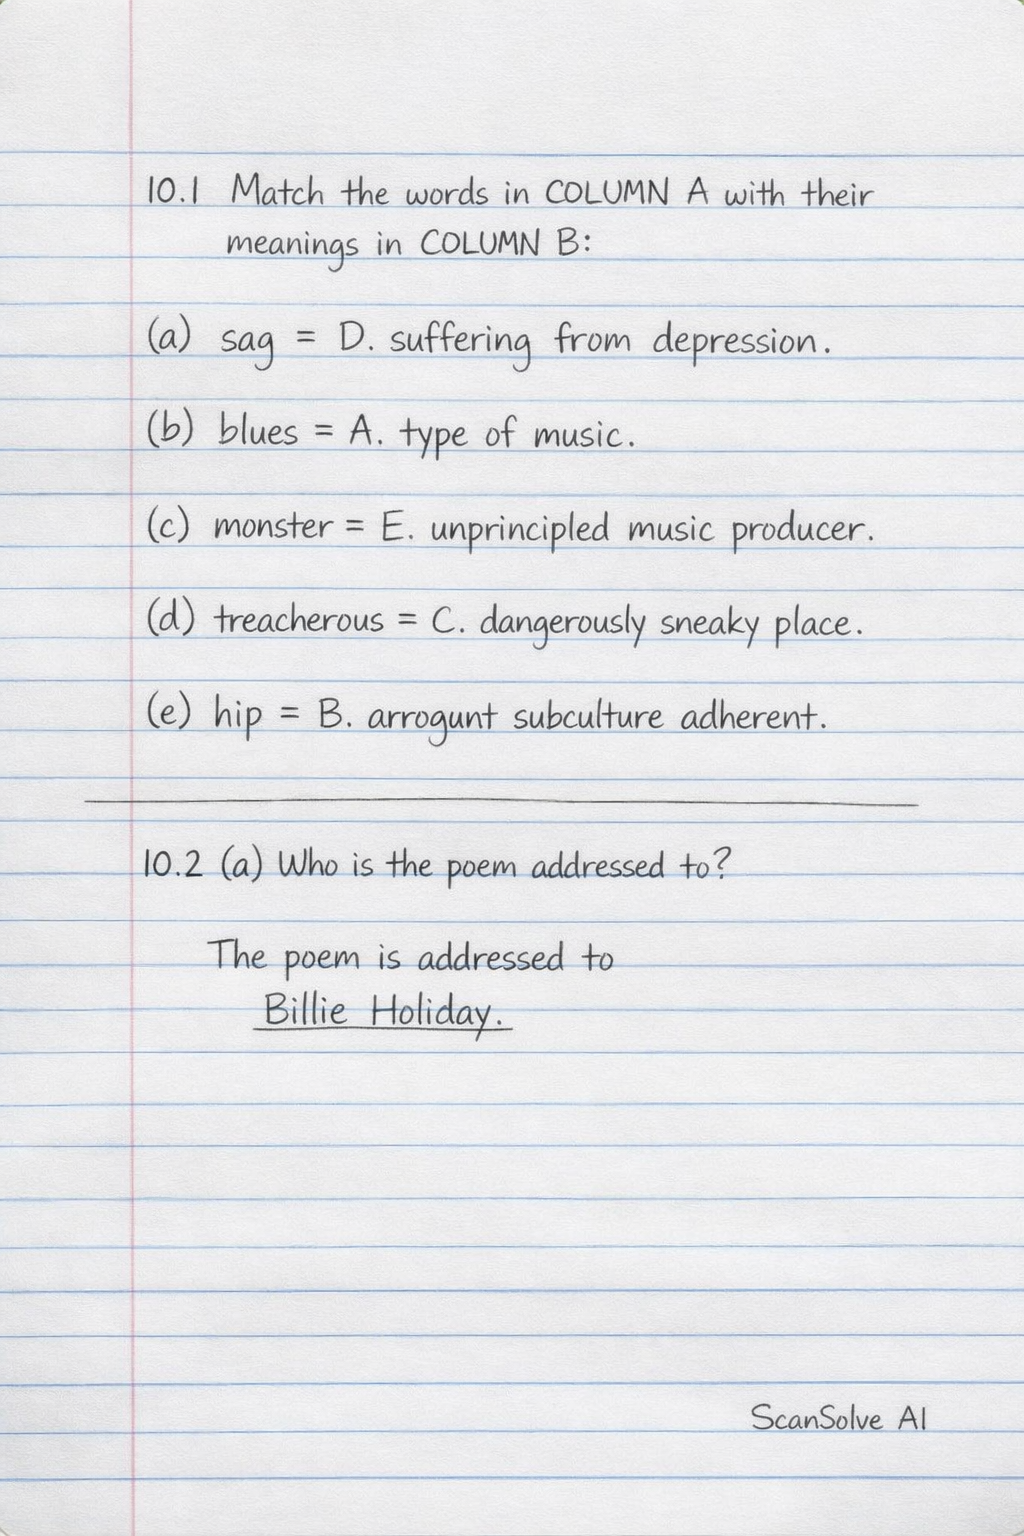 10.1 Match the words in COLUMN A with their
meanings in COLUMN B:
(a) sag = D. suffering from depression.
(b) blues = A. type of music.
(c) monster = E. unprincipled music producer.
(d) treacherous = C. dangerously sneaky place.
(e) hip = B. arrogunt subculture adherent.
10.2 (a) Who is the poem addressed to?
The poem is addressed to
Billie Holiday.
ScanSolve AI